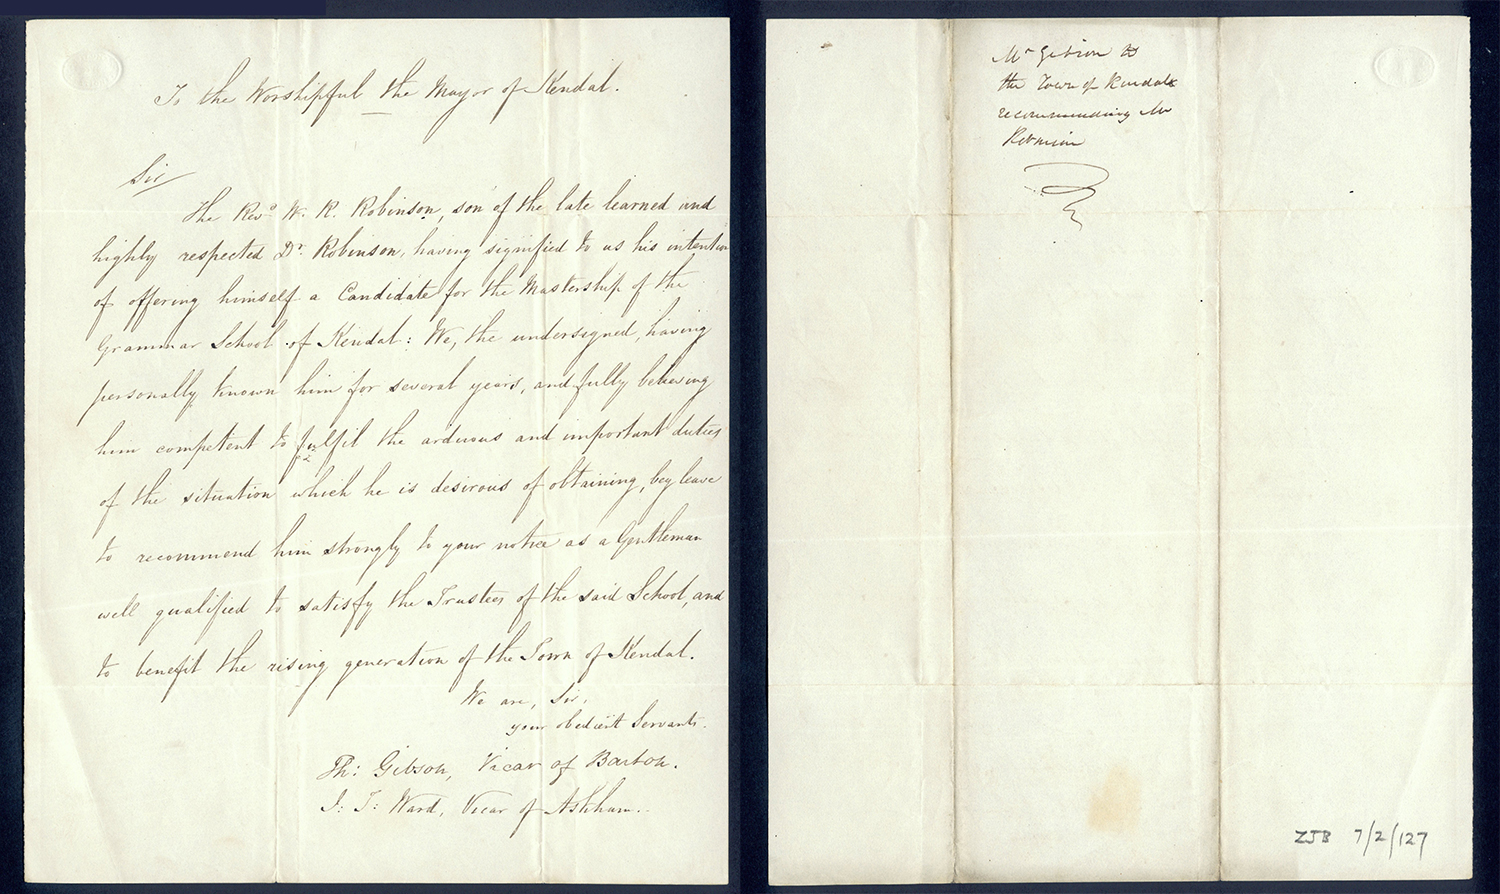 To the Worshipful the Mayor of Kendal.
Sir
The Revd. W. R. Robinson, son of the late learned and
highly respected Dr. Robinson, having signified to us his intention
of offering himself a Candidate for the Mastership of the
Grammar School of Kendal: We, the undersigned, having
personally known him for several years, and fully believing
him competent to fulfil the arduous and important duties
of the situation which he is desirous of obtaining, beg leave
to recommend him strongly to your notice as a Gentleman
well qualified to satisfy the Trustees of the said School, and
to benefit the rising generation of the Town of Kendal.
We are, Sir,
your obedient Servants.
Th: Gibson, Vicar of Barton.
J: T: Ward, Vicar of Askham.
Mr Gibson to
the Town of Kendal
recommending Mr
Robinson
ZJB 7/2/127